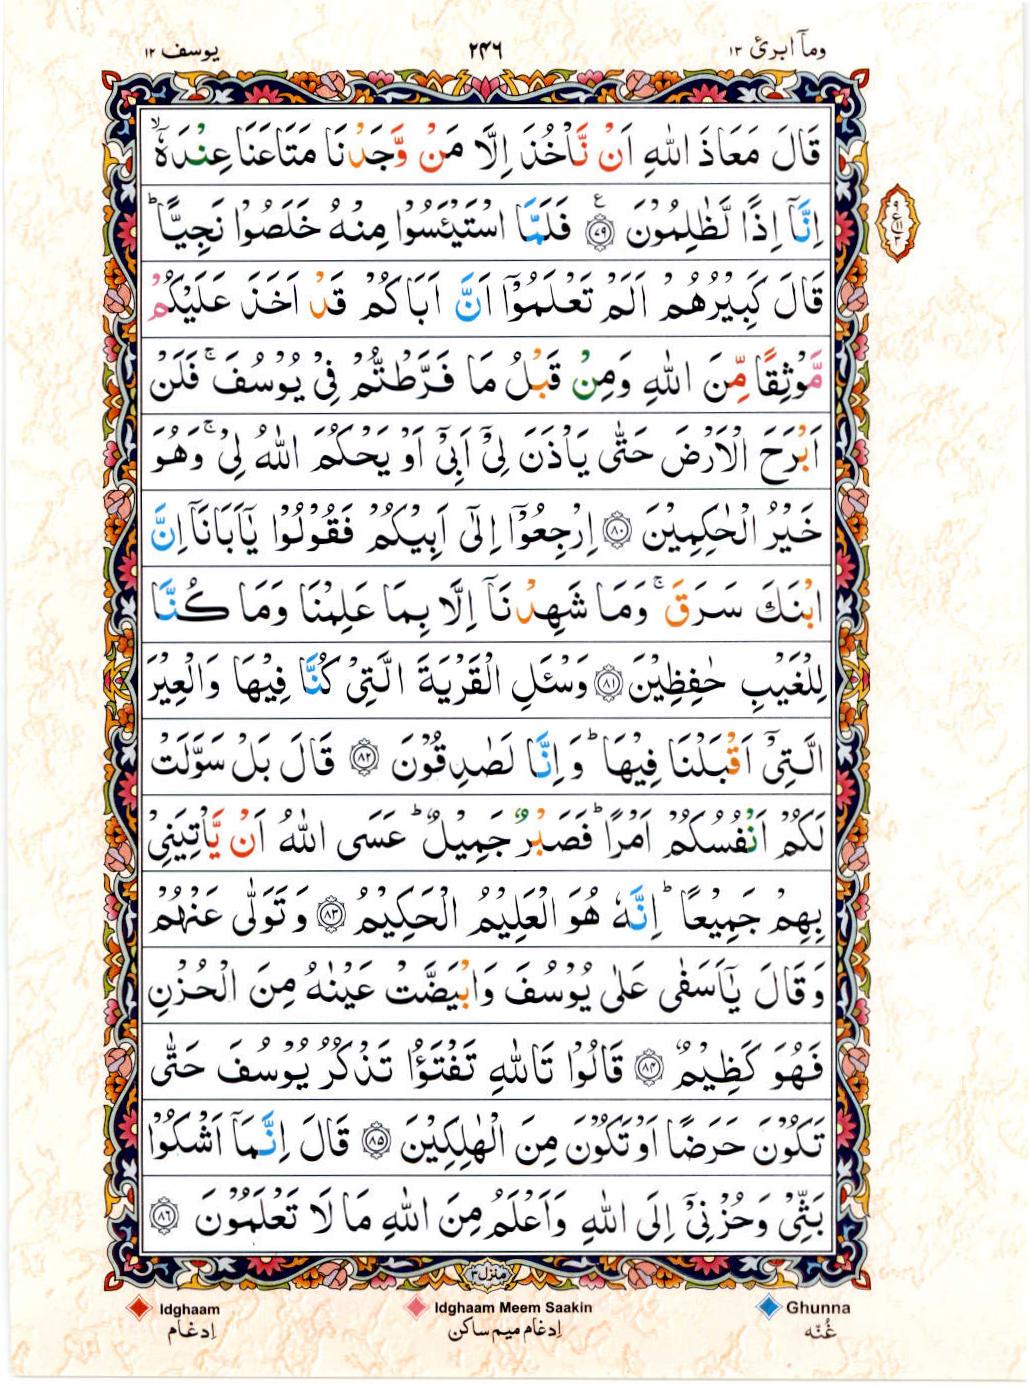 ومآ ابرئ ۱۳
۲۴۶
یوسف ۱۲
قَالَ مَعَاذَ اللّٰهِ اَنْ نَّاْخُذَ اِلَّا مَنْ وَّجَدْنَا مَتَاعَنَا عِنْدَهٗۤ ۙ
اِنَّاۤ اِذًا لَّظٰلِمُوْنَ ۟﴿۷۹﴾ ع فَلَمَّا اسْتَیْـَٔسُوْا مِنْهُ خَلَصُوْا نَجِیًّا ؕ
قَالَ كَبِیْرُهُمْ اَلَمْ تَعْلَمُوْۤا اَنَّ اَبَاكُمْ قَدْ اَخَذَ عَلَیْكُمْ
مَّوْثِقًا مِّنَ اللّٰهِ وَمِنْ قَبْلُ مَا فَرَّطْتُّمْ فِیْ یُوْسُفَ ۚ فَلَنْ
اَبْرَحَ الْاَرْضَ حَتّٰی یَاْذَنَ لِیْۤ اَبِیْۤ اَوْ یَحْكُمَ اللّٰهُ لِیْ ۚ وَهُوَ
خَیْرُ الْحٰكِمِیْنَ ﴿۸۰﴾ اِرْجِعُوْۤا اِلٰۤی اَبِیْكُمْ فَقُوْلُوْا یٰۤاَبَانَاۤ اِنَّ
ابْنَكَ سَرَقَ ۚ وَمَا شَهِدْنَاۤ اِلَّا بِمَا عَلِمْنَا وَمَا كُنَّا
لِلْغَیْبِ حٰفِظِیْنَ ﴿۸۱﴾ وَسْـَٔلِ الْقَرْیَةَ الَّتِیْ كُنَّا فِیْهَا وَالْعِیْرَ
الَّتِیْۤ اَقْبَلْنَا فِیْهَا ؕ وَاِنَّا لَصٰدِقُوْنَ ﴿۸۲﴾ قَالَ بَلْ سَوَّلَتْ
لَكُمْ اَنْفُسُكُمْ اَمْرًا ؕ فَصَبْرٌ جَمِیْلٌ ؕ عَسَی اللّٰهُ اَنْ یَّاْتِیَنِیْ
بِهِمْ جَمِیْعًا ؕ اِنَّهٗ هُوَ الْعَلِیْمُ الْحَكِیْمُ ﴿۸۳﴾ وَتَوَلّٰی عَنْهُمْ
وَقَالَ یٰۤاَسَفٰی عَلٰی یُوْسُفَ وَابْیَضَّتْ عَیْنٰهُ مِنَ الْحُزْنِ
فَهُوَ كَظِیْمٌ ﴿۸۴﴾ قَالُوْا تَاللّٰهِ تَفْتَؤُا تَذْكُرُ یُوْسُفَ حَتّٰی
تَكُوْنَ حَرَضًا اَوْ تَكُوْنَ مِنَ الْهٰلِكِیْنَ ﴿۸۵﴾ قَالَ اِنَّمَاۤ اَشْكُوْا
بَثِّیْ وَحُزْنِیْۤ اِلَی اللّٰهِ وَاَعْلَمُ مِنَ اللّٰهِ مَا لَا تَعْلَمُوْنَ ﴿۸۶﴾
منزل ۳
Idghaam Idghaam Meem Saakin Ghunna
اِدغام اِدغام میم ساکن غُنّه